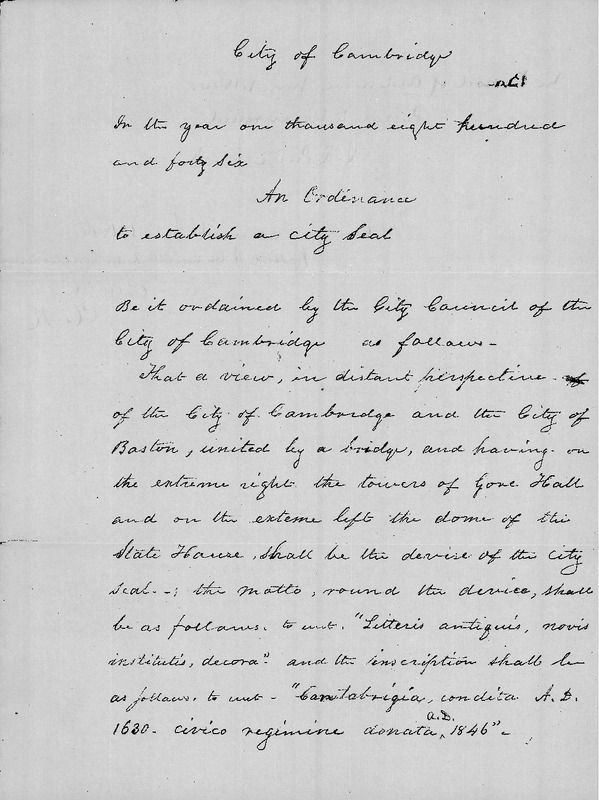 City of Cambridge
In the year one thousand eight hundred
and forty six
An Ordinance
to establish a city Seal
Be it ordained by the City Council of the
City of Cambridge as follows-
That a view, in distant perspective
of the City of Cambridge and the City of
Boston, united by a bridge, and having on
the extreme right the towers of Gore Hall
and on the exteme left the dome of the
State House, shall be the devise of the city
seal.-; the motto, round the device, shall
be as follows. to wit. "Litteris antiquis, novis
institutis, decora." and the inscription shall be
as follows. to wit - "Cantabrigia, condita A.D.
1630- civico regimine donata, A.D. 1846"-